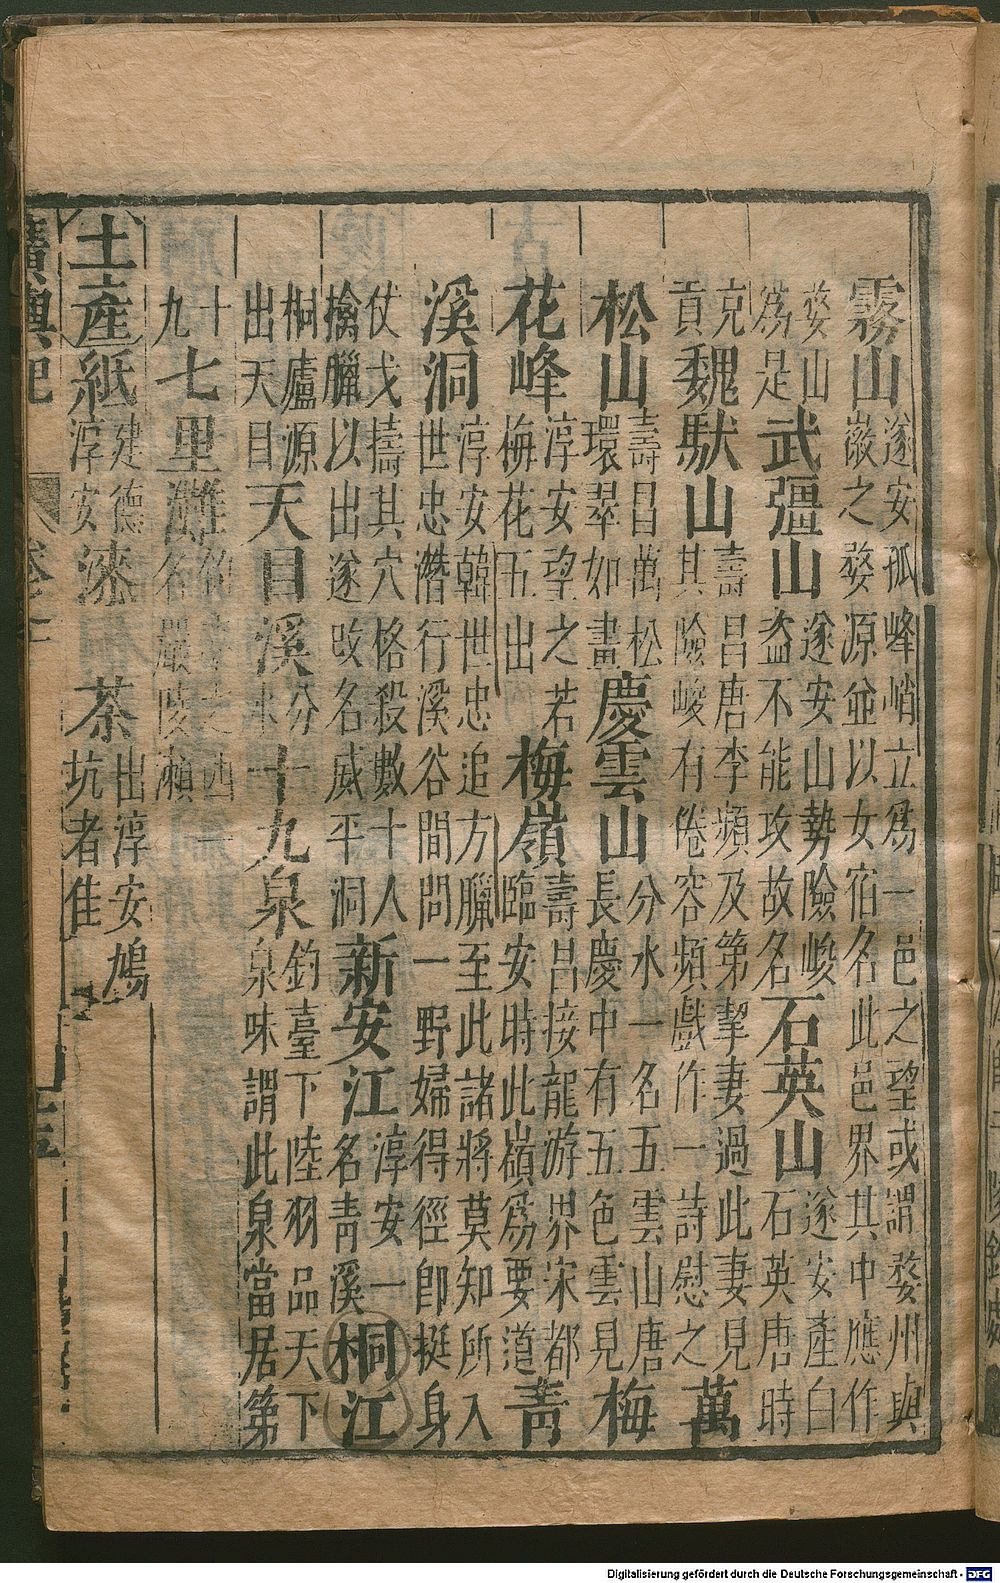 霧山 遂安孤峰峭立爲一邑之望或謂婺州與
徽之婺源並以女宿名此邑界其中應作
婺山
爲是 武彊山 遂安山勢險峻
盗不能攻故名 石英山 遂安產白
石英唐時
克
貢 魏馱山 壽昌唐李頻及第挈妻過此妻見
其險峻有倦容頻戲作一詩慰之 萬
松山 壽昌萬松
環翠如畫 慶雲山 分水一名五雲山唐
長慶中有五色雲見 梅
花峰 淳安望之若
梅花五出 梅嶺 壽昌接龍游界宋都
臨安時此嶺爲要道 青
溪洞 淳安韓世忠追方臘至此諸將莫知所入
世忠潛行溪谷間問一野婦得徑卽挺身
仗戈擣其穴格殺數十人
擒臘以出遂改名威平洞 新安江 淳安一
名青溪 桐江
桐廬源
出天目 天目溪 分
水 十九泉 釣臺下陸羽品天下
泉味謂此泉當居第
十
九 七里灘
名嚴陵瀨
土產 紙 建德
淳安 漆 茶 出淳安鳩
坑者佳
廣輿記